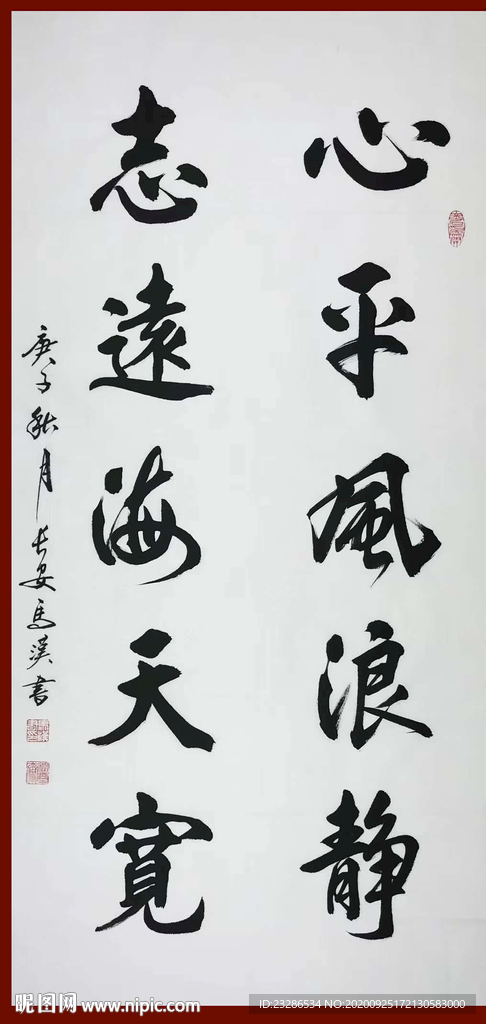 心平風浪静
志遠海天寬
庚子秋月長安馬漢書
昵图网 www.nipic.com
ID:23286534 NO:20200925172130583000